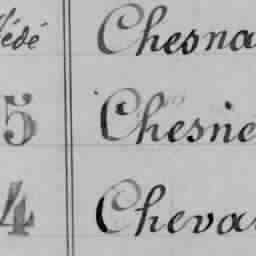 édé Chesna
5 Chesne
4 Cheva